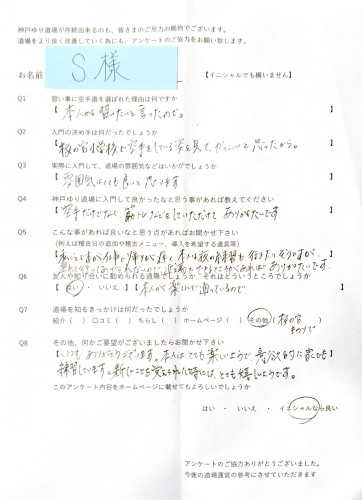 神戸ゆり道場が存続出来るのも、皆さまのご尽力の賜物でございます。
道場をより良く改善していく為にも、アンケートのご協力をお願い致します。
お名前 S様 【イニシャルでも構いません】
Q1 習い事に空手道を選ばれた理由は何ですか
【 本人が習いたいと言ったので。 】
Q2 入門の決め手は何だったでしょうか
【 校の宮小学校で空手をしている姿を見て、カッコいいと思ったから。 】
Q3 実際に入門して、道場の雰囲気などはいかがでしょうか
【 雰囲気はとても良いと思います 】
Q4 神戸ゆり道場に入門して良かったなと思う事があれば教えてください
【 空手だけでなく、筋トレなどもしていただけて ありがたいです 】
Q5 こんな事があれば良いなと思う点があればお聞かせ下さい
(例えば稽古日の追加や稽古メニュー、導入を希望する道具等)
Q6 友人や知り合いに勧められる道場でしょうか それはどういうところでしょうか
【 はい ・ いいえ 本人が楽しんで通っているので 】
Q7 道場を知るきっかけは何だったでしょうか
紹介( ) 口コミ( ) ちらし( ) ホームページ( ) その他(
Q8 その他、何かご要望がございましたらお聞かせ下さい
【 いつも ありがとうございます。本人は とても 楽しいようで 意欲的に家でも
練習しています。新しいことを覚えられた時には、とても嬉しそうです。 】
このアンケート内容をホームページに載せてもよろしいでしょうか
はい ・ いいえ ・ イニシャルなら良い
アンケートのご協力ありがとうございました。
今後の道場運営の参考にさせていただきます